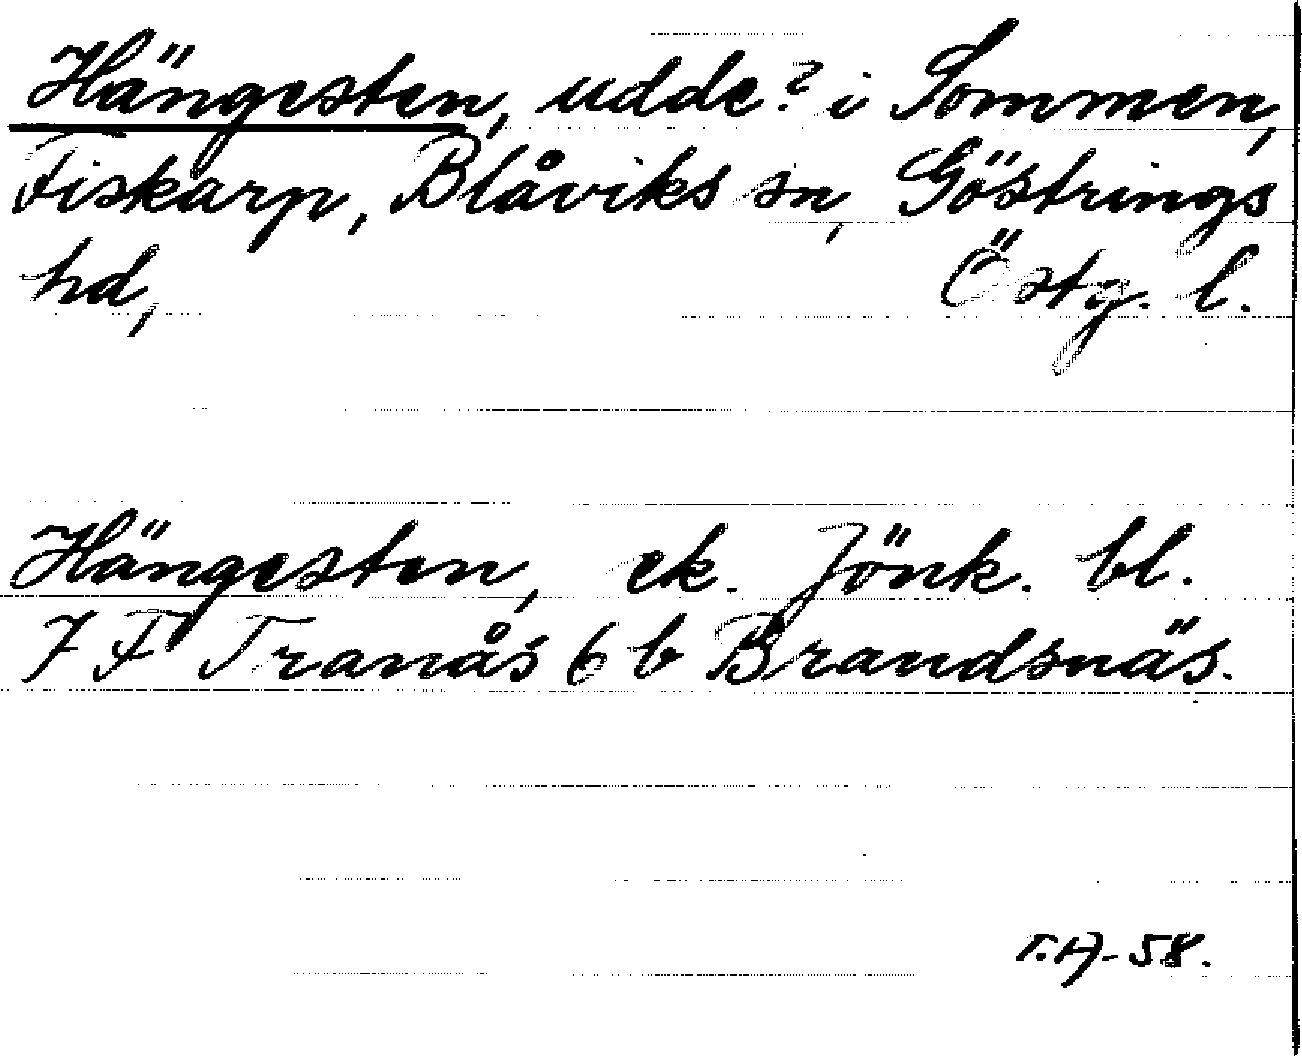 Hängesten, udde? i Sommen,
Fiskarp, Blåviks sn, Göstrings
hd, Östg. l.
Hängesten, ek. Jönk. bl.
7 F Tranås 6 b Brandsnäs.
T.A-58.